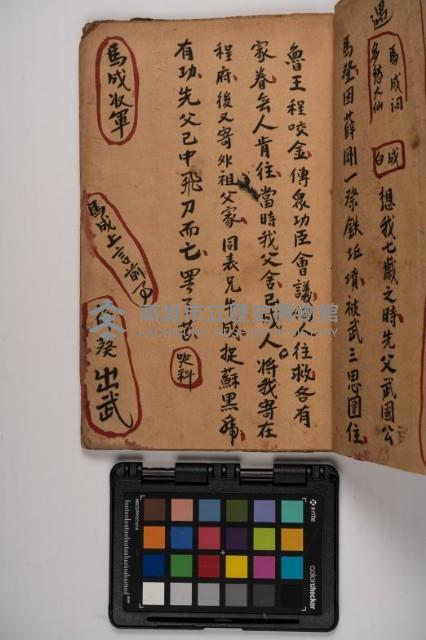 遇
馬成詞
白 成
想我七歲之時先父武國公
馬登因薛剛一祭鉄坵墳被武三思圍住
魯王程咬金傳眾功臣會議 人往救各有
家眷無人肯往當時我父舍己 人將我寄在
程府後又寄外祖父家同表兄朱成捉蘇黑
有功先父已中飛刀而亡
哭科
馬成收軍
馬成上言前
癸 出武
高雄市立歷史博物館
x-rite
colorchecker